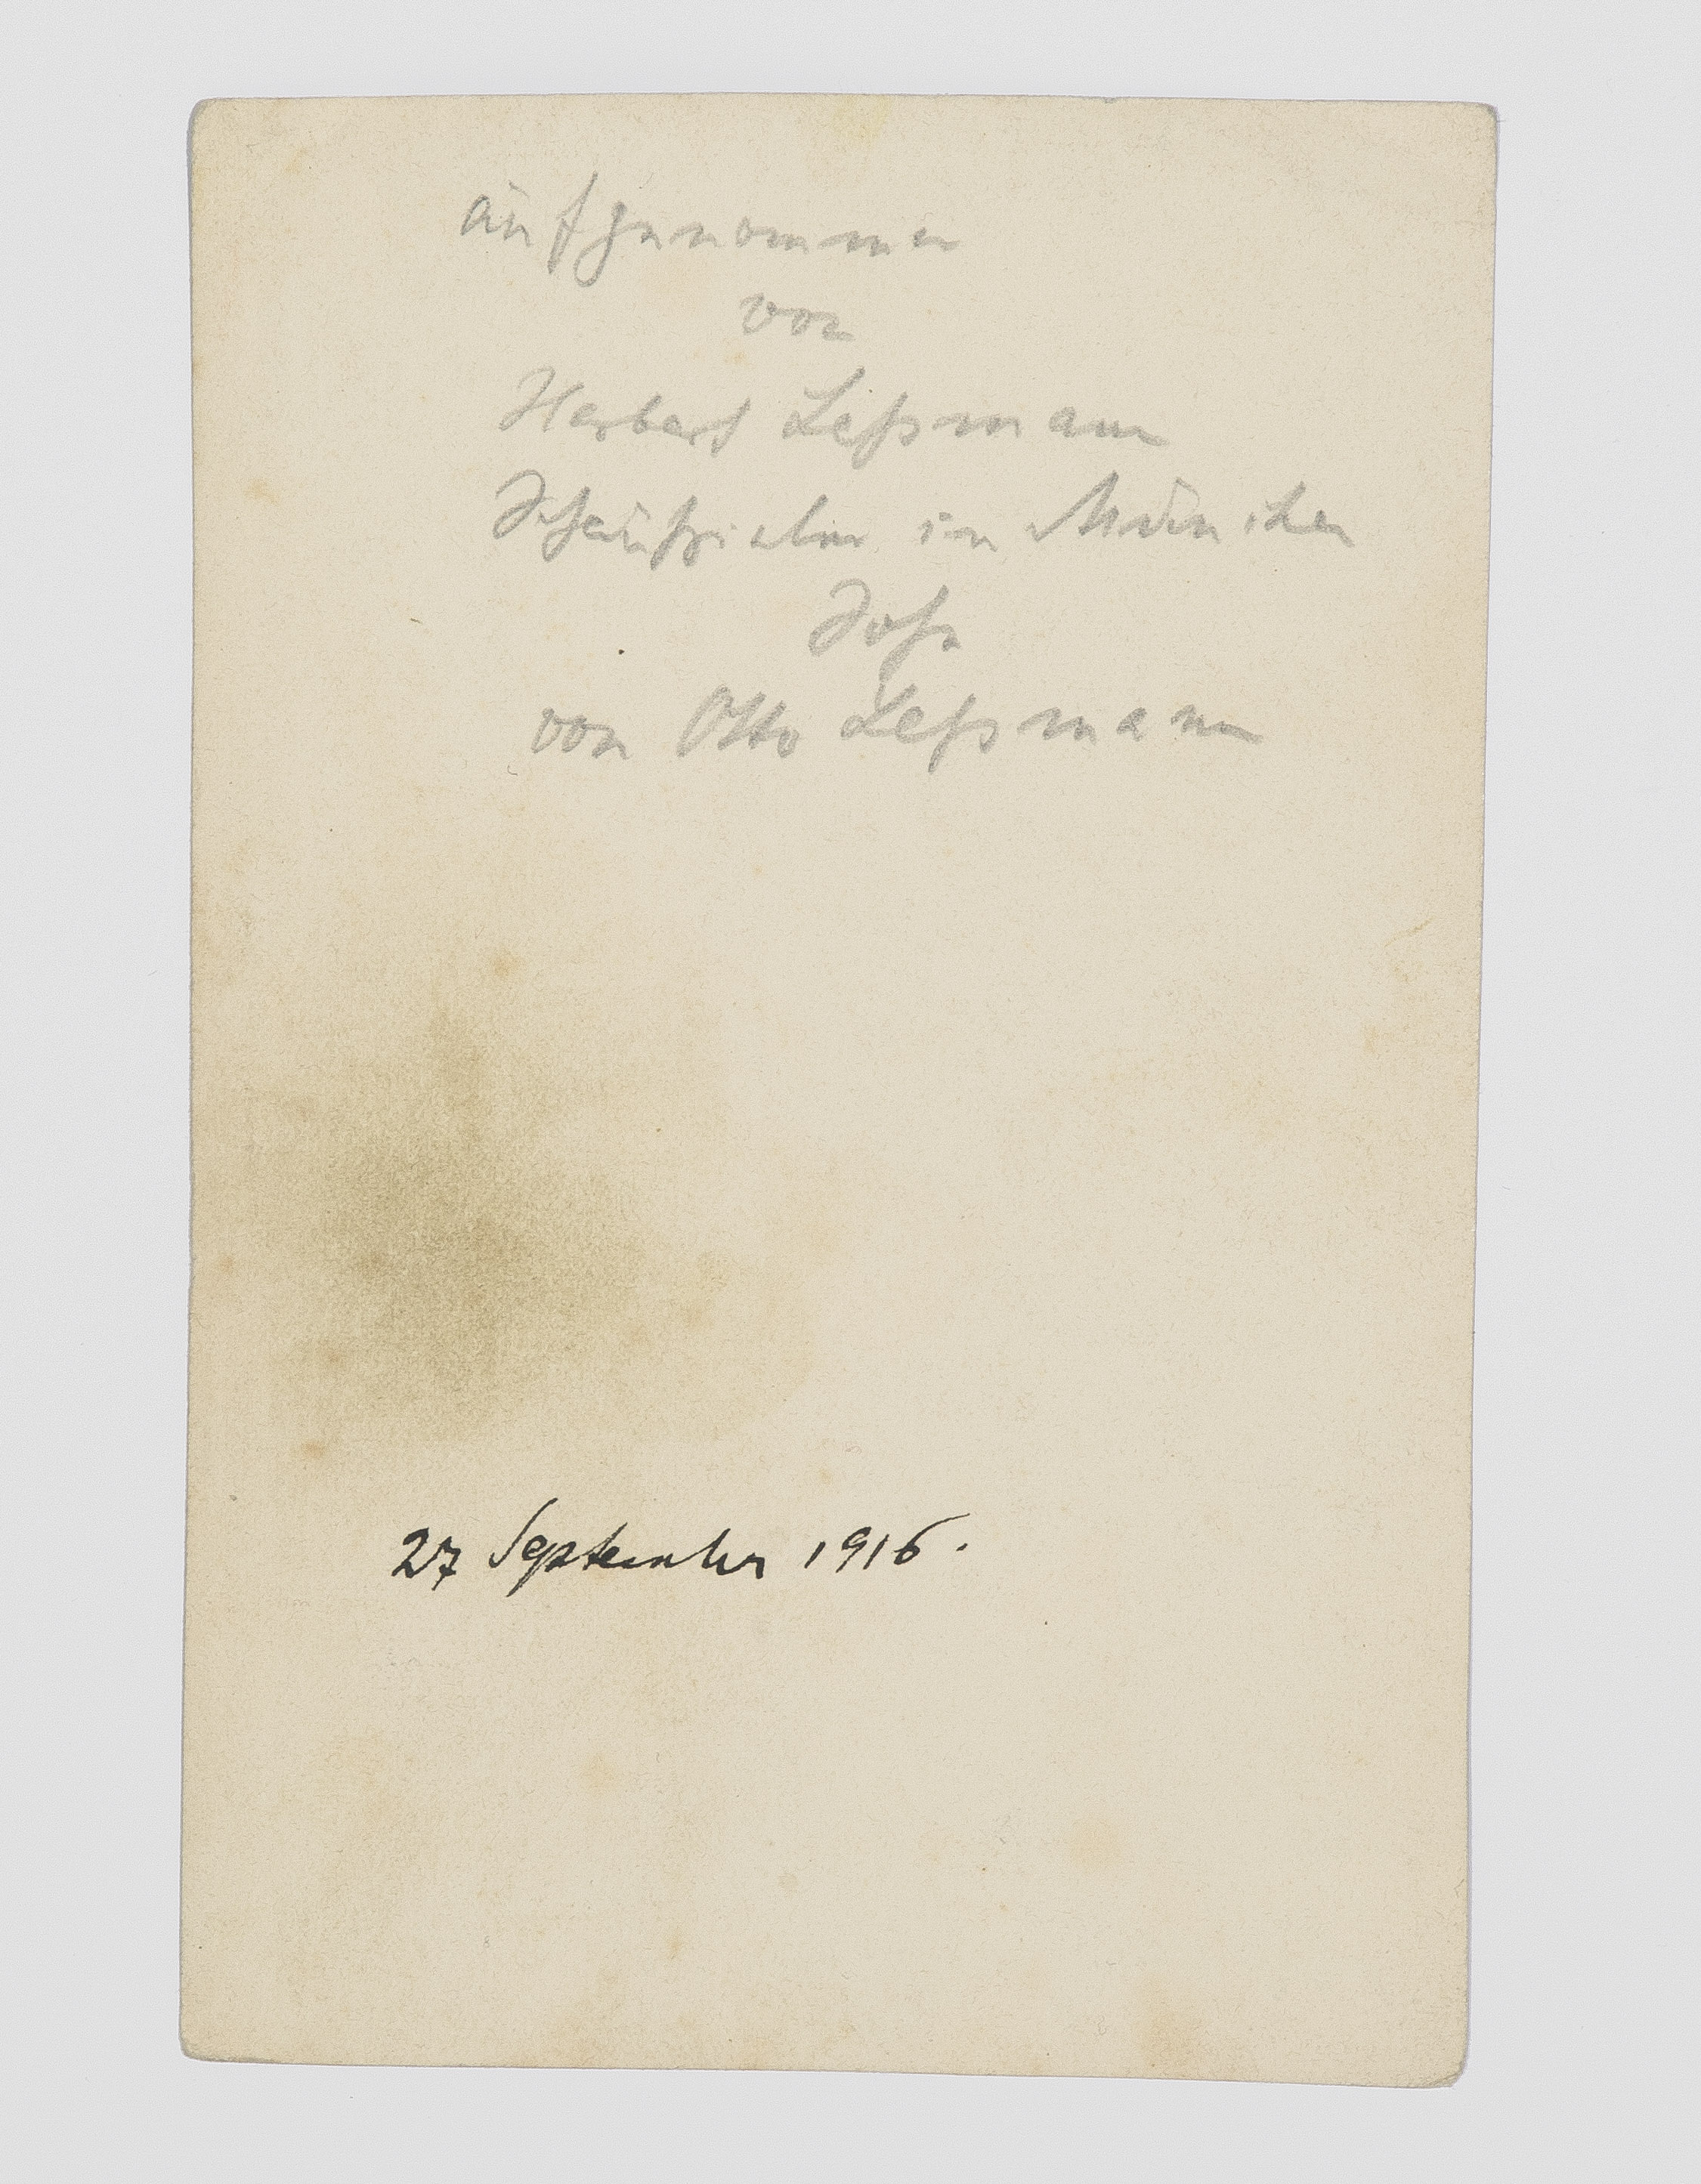 aufgenommen
von
Herbert Leßmann
Schauspieler in München
Sohn
von Otto Leßmann
27 September 1916.